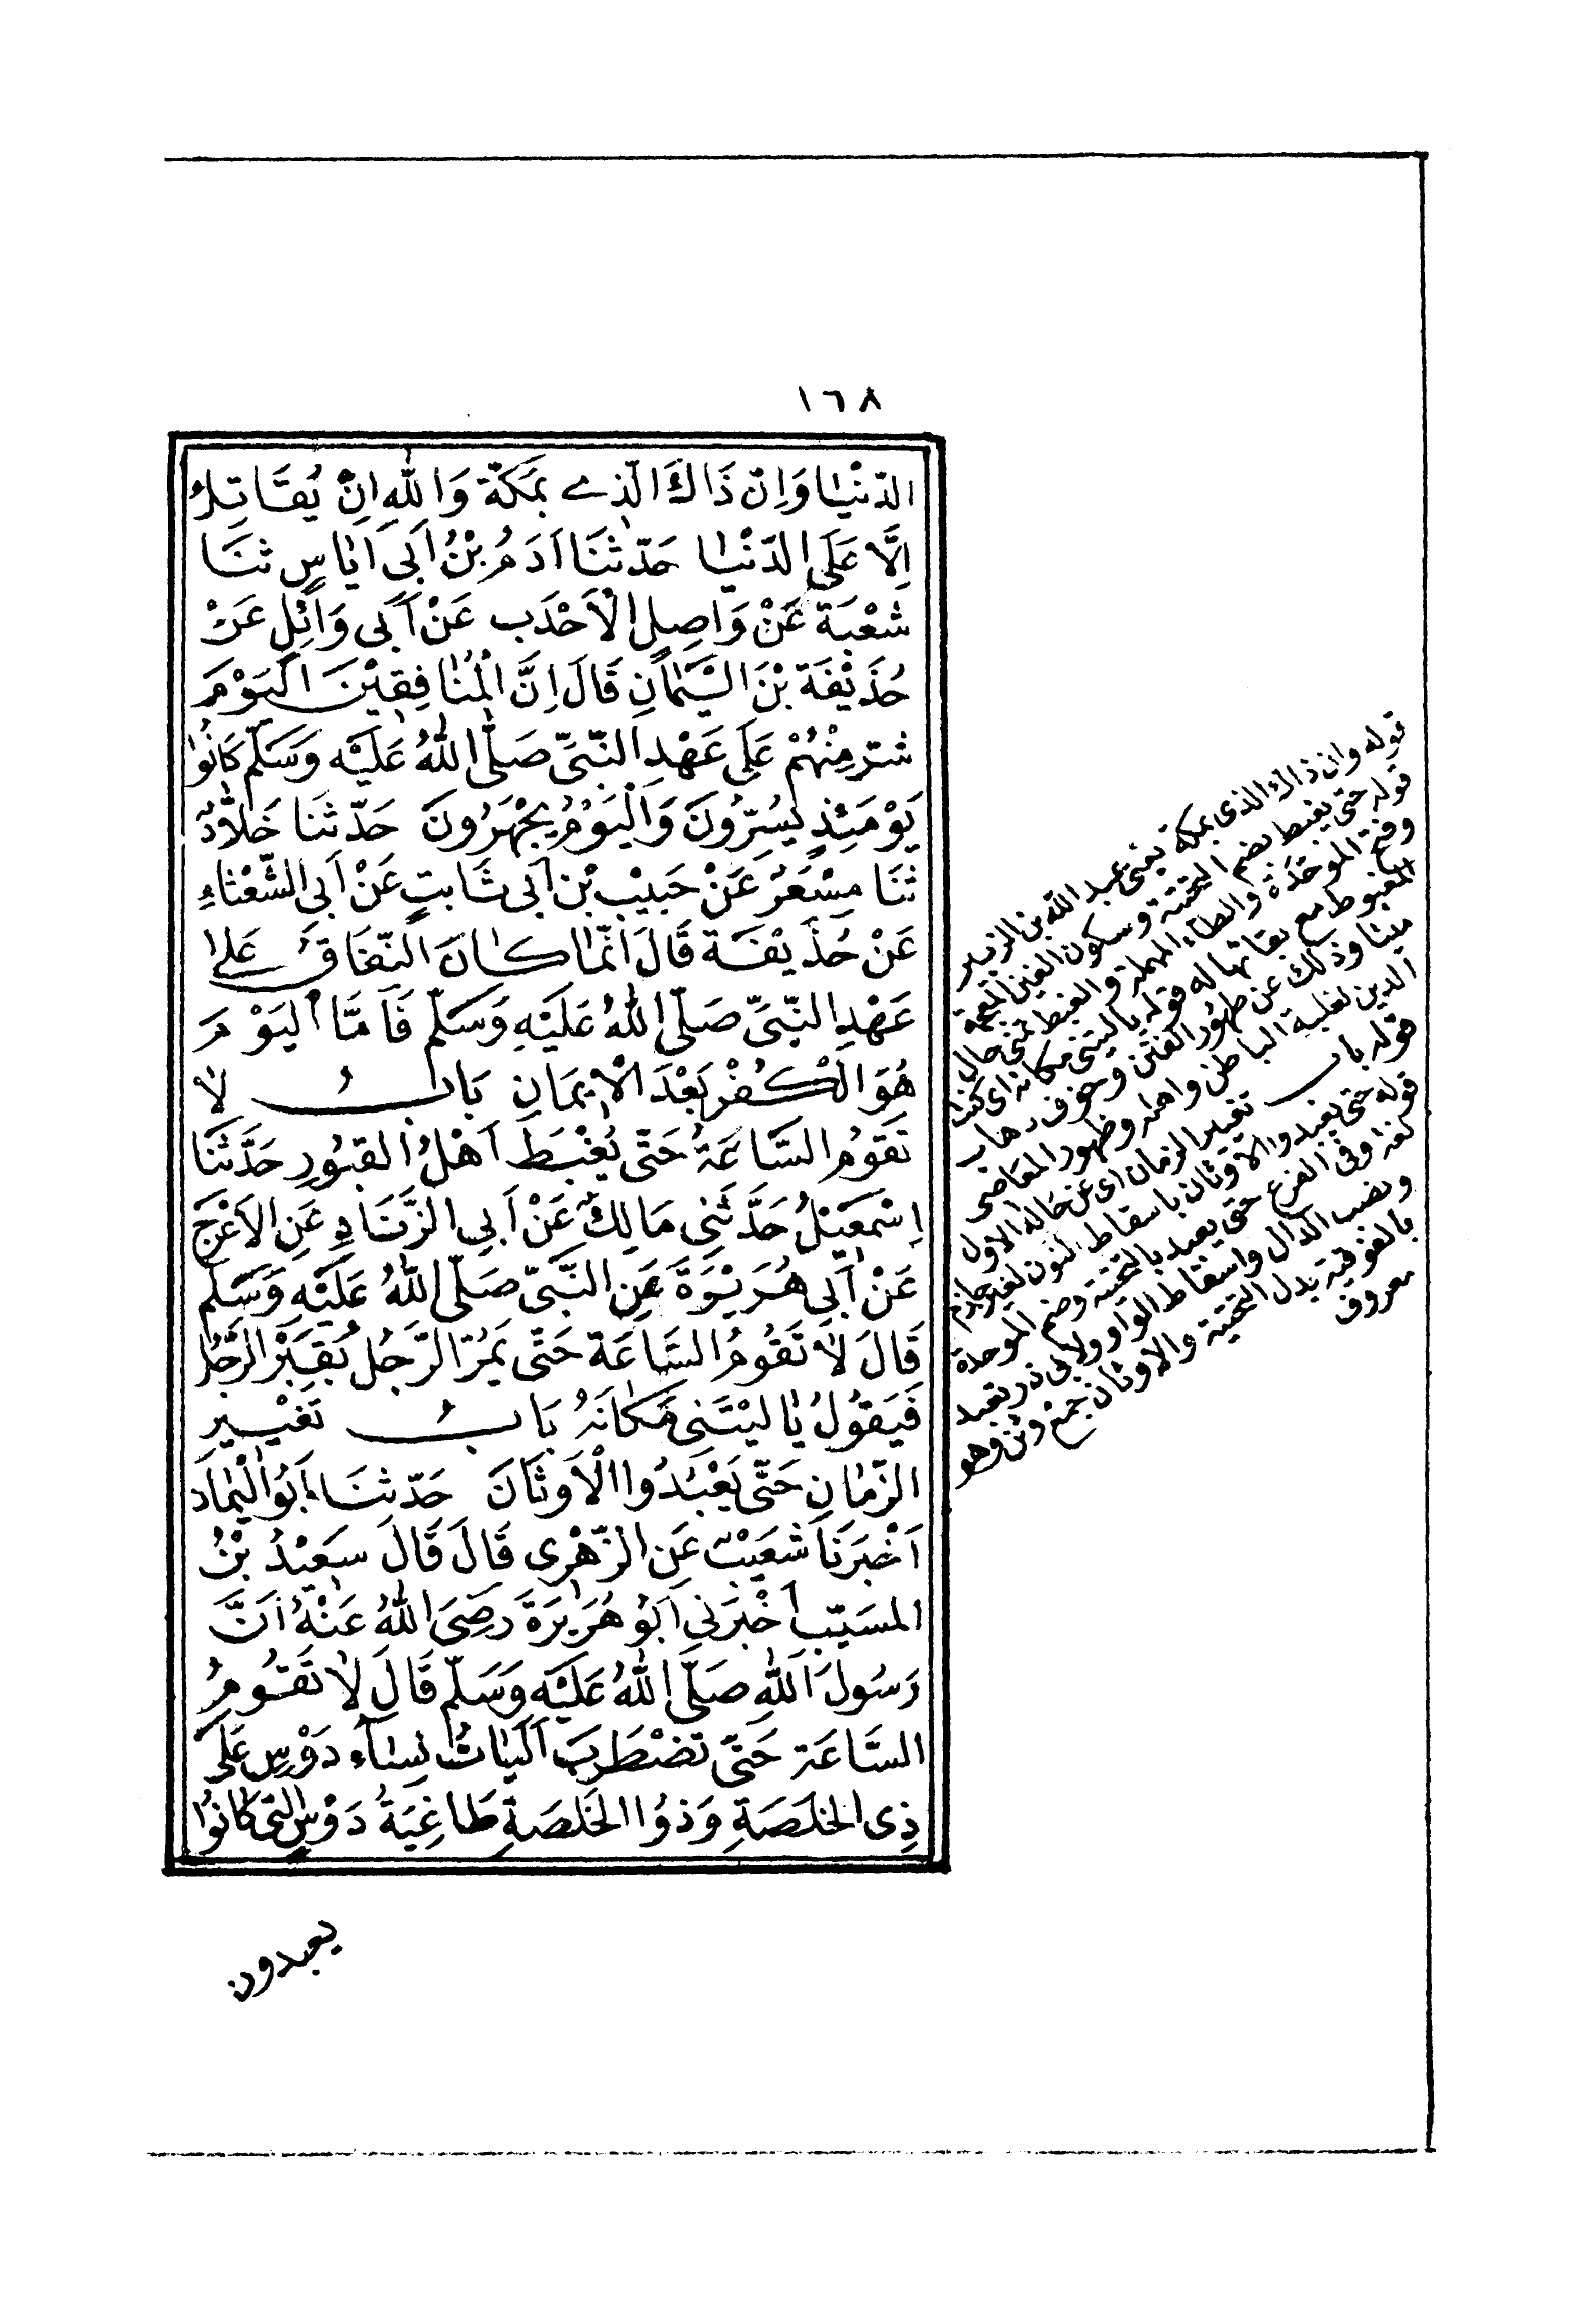 ١٦٨
الدّنْيَا وَاِنّ ذَاكَ الّذِي بِمَكّةَ وَاللّٰهِ اِنْ يُقَاتِلُ
اِلَّا عَلَى الدّنْيَا حَدّثنَا اٰدَمُ بْنُ اَبِى اِيَاسٍ ثَنَا
شُعْبَةُ عَنْ وَاصِلٍ الْاَحْدَبِ عَنْ اَبِى وَائِلٍ عَنْ
حُذَيْفَةَ بْنِ الْيَمَانِ قَالَ اِنَّ الْمُنَافِقِيْنَ الْيَوْمَ
شَرّ مِنْهُمْ عَلَى عَهْدِ النّبِىّ صَلّى اللّٰهُ عَلَيْهِ وَسَلّمَ كَانُوا
يَوْمَئِذٍ يُسِرّونَ وَالْيَوْمَ يَجْهَرُونَ حَدّثنَا خَلاَّدٌ
ثَنَا مِسْعَرٌ عَنْ حَبِيْبِ بْنِ اَبِى ثَابِتٍ عَنْ اَبِى الشّعْثَاءِ
عَنْ حُذَيْفَةَ قَالَ اِنّمَا كَانَ النّفَاقُ عَلى
عَهْدِ النّبِىّ صَلّى اللّٰهُ عَلَيْهِ وَسَلّمَ فَاَمَّا الْيَوْمَ
هُوَ الْكُفْرُ بَعْدَ الْاِيمَانِ بَابٌ لَا
تَقُومُ السَّاعَةُ حَتّى يُغْبَطَ اَهْلُ القبُورِ حَدَّثَنَا
اِسْمٰعِيْلُ حَدَّثَنِى مَالِكٌ عَنْ اَبِى الزَّنَادِ عَنِ الاَعْرَجِ
عَنْ اَبِى هُرَيْرَةَ عَنِ النَّبِىّ صَلّى اللّٰهُ عَلَيْهِ وَسَلّمَ
قَالَ لَا تَقُومُ السَّاعَةُ حَتّى يَمُرّ الرّجُلُ بِقَبْرِ الرّجُلِ
فَيَقُولُ يَا لَيْتَنِى مَكَانَهُ بَابُ تَغْيِيرِ
الزّمَانِ حَتّى يَعْبُدُوا الْاَوثَانَ حَدّثنَا اَبُو الْيَمَانِ
اَخْبَرَنَا شُعَيْبٌ عَنِ الزّهْرِى قَالَ قَالَ سَعِيْدُ بْنُ
المسَيّبِ اَخْبَرَنِى اَبُو هُرَيْرَةَ رَضِىَ اللّٰهُ عَنْهُ اَنَّ
رَسُولَ اللّٰهِ صَلّى اللّٰهُ عَلَيْهِ وَسَلّمَ قَالَ لَا تَقُومُ
السَّاعَة حَتّى تَضْطَرِبَ اَلَيَاتُ نِسَاءِ دَوْسٍ عَلَى
ذِى الخَلَصَةِ وَذُوا الخَلَصَةِ طَاغِيَةُ دَوْسٍ الّتِى كَانُوا
قوله وان ذاك الذى بمكة يعنى عبد الله بن الزبير
قوله حتى يغبط بضم التحتية وسكون الغين المعجمة
وفتح الموحّدة والطاء المهملة والغبط تمنى حال
المغبوط مع بقائها له قوله يا ليتنى مكانه اى كنت
ميتا وذلك عن ظهور الفتن وخوف ذهاب
الدين لغلبة الباطل واهله وظهور المعاصى
قوله باب تغيير الزمان اى عن حاله الاول
قوله حتى يعبدوا الاوثان باسقاط النون لغير جازم
لغة وفى الفرع حتى يعبد بالتحتية وضم الموحدة
ونصب الدال واسقاط الواو ولابى ذر تعبد
بالفوقية بدل التحتية والاوثان جمع وثن وهو
معروف
يعبدون